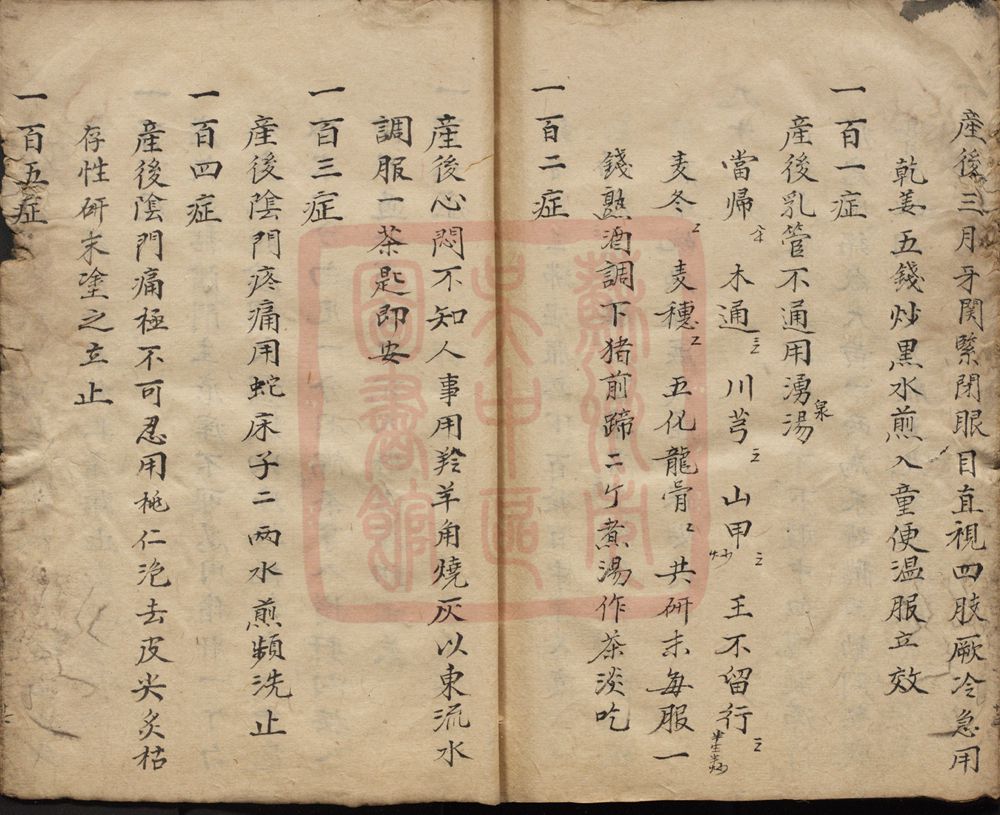 産後三月牙関緊閉眼目直視四肢厥冷急用
乾姜五錢炒黒水煎入童便温服立效
一百一症
産後乳管不通用湧泉湯
當帰 木通 川芎 山甲炒 王不留行半生半炒
麦冬 麦穗 五化龍骨 共研末每服一
錢熟酒調下猪前蹄二个煮湯作茶淡吃
一百二症
産後心悶不知人事用羚羊角燒灰以東流水
調服一茶匙即安
一百三症
産後陰門疼痛用蛇床子二兩水煎頻洗止
一百四症
産後陰門痛極不可忍用桃仁泡去皮尖炙枯
存性研末塗之立止
一百五症
蘇州市
吴中區
圖書館